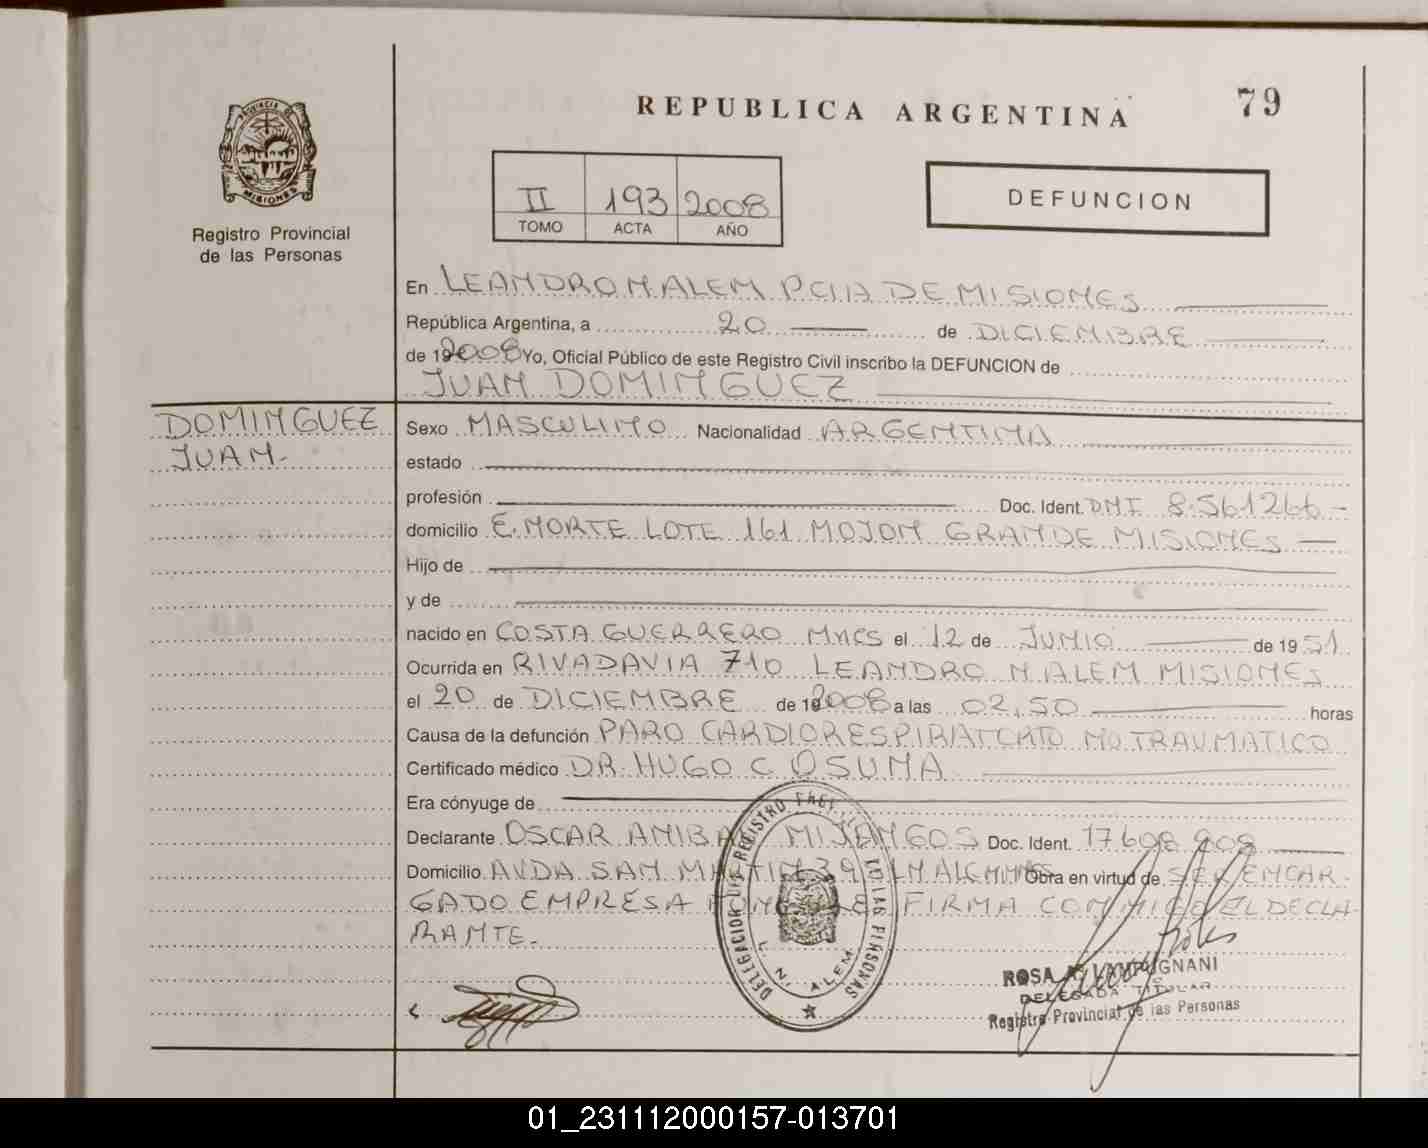 REPUBLICA ARGENTINA
79
PROVINCIA DE
MISIONES
Registro Provincial
de las Personas
II 193 2008
TOMO ACTA AÑO
DEFUNCION
En LEANDRO N. ALEM PCIA DE MISIONES
República Argentina, a 20 de DICIEMBRE
de 19 2008 Yo, Oficial Público de este Registro Civil inscribo la DEFUNCION de
JUAN DOMINGUEZ
DOMINGUEZ
JUAN.-
Sexo MASCULINO Nacionalidad ARGENTINA
estado
profesión Doc. Ident. DNI 8.561266-
domicilio E. NORTE LOTE 161 MOJON GRANDE MISIONES
Hijo de
y de
nacido en COSTA GUERRERO Mnes el 12 de JUNIO de 1951
Ocurrida en RIVADAVIA 710 LEANDRO N. ALEM MISIONES
el 20 de DICIEMBRE de 19 2008 a las 02,50 horas
Causa de la defunción PARO CARDIORESPIRIATORIO NO TRAUMATICO
Certificado médico DR. HUGO C OSUNA
Era cónyuge de
Declarante OSCAR ANIBAL MIJANGOS Doc. Ident. 17608 908
Domicilio AVDA SAN MARTIN 39 LN ALEM Obra en virtud de SER ENCAR-
GADO EMPRESA FIRMA CONMIGO EL DECLA-
RANTE.-
DELEGACION DEL REGISTRO DE LAS PERSONAS
L. N. ALEM
ROSA LAMPUGNANI
DELEGADA TITULAR
Registro Provincial de las Personas
01_231112000157-013701